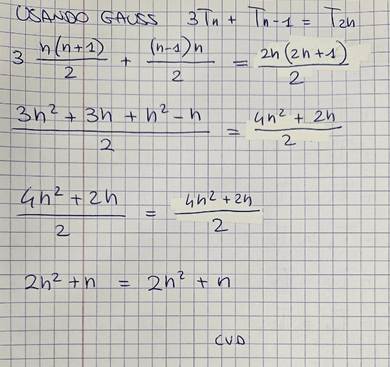 USANDO GAUSS 3Tn + Tn-1 = T2n
3 n(n+1)/2 + (n-1)n/2 = 2n(2n+1)/2
3n² + 3n + n² - n/2 = 4n² + 2n/2
4n² + 2n/2 = 4n² + 2n/2
2n² + n = 2n² + n
CVD